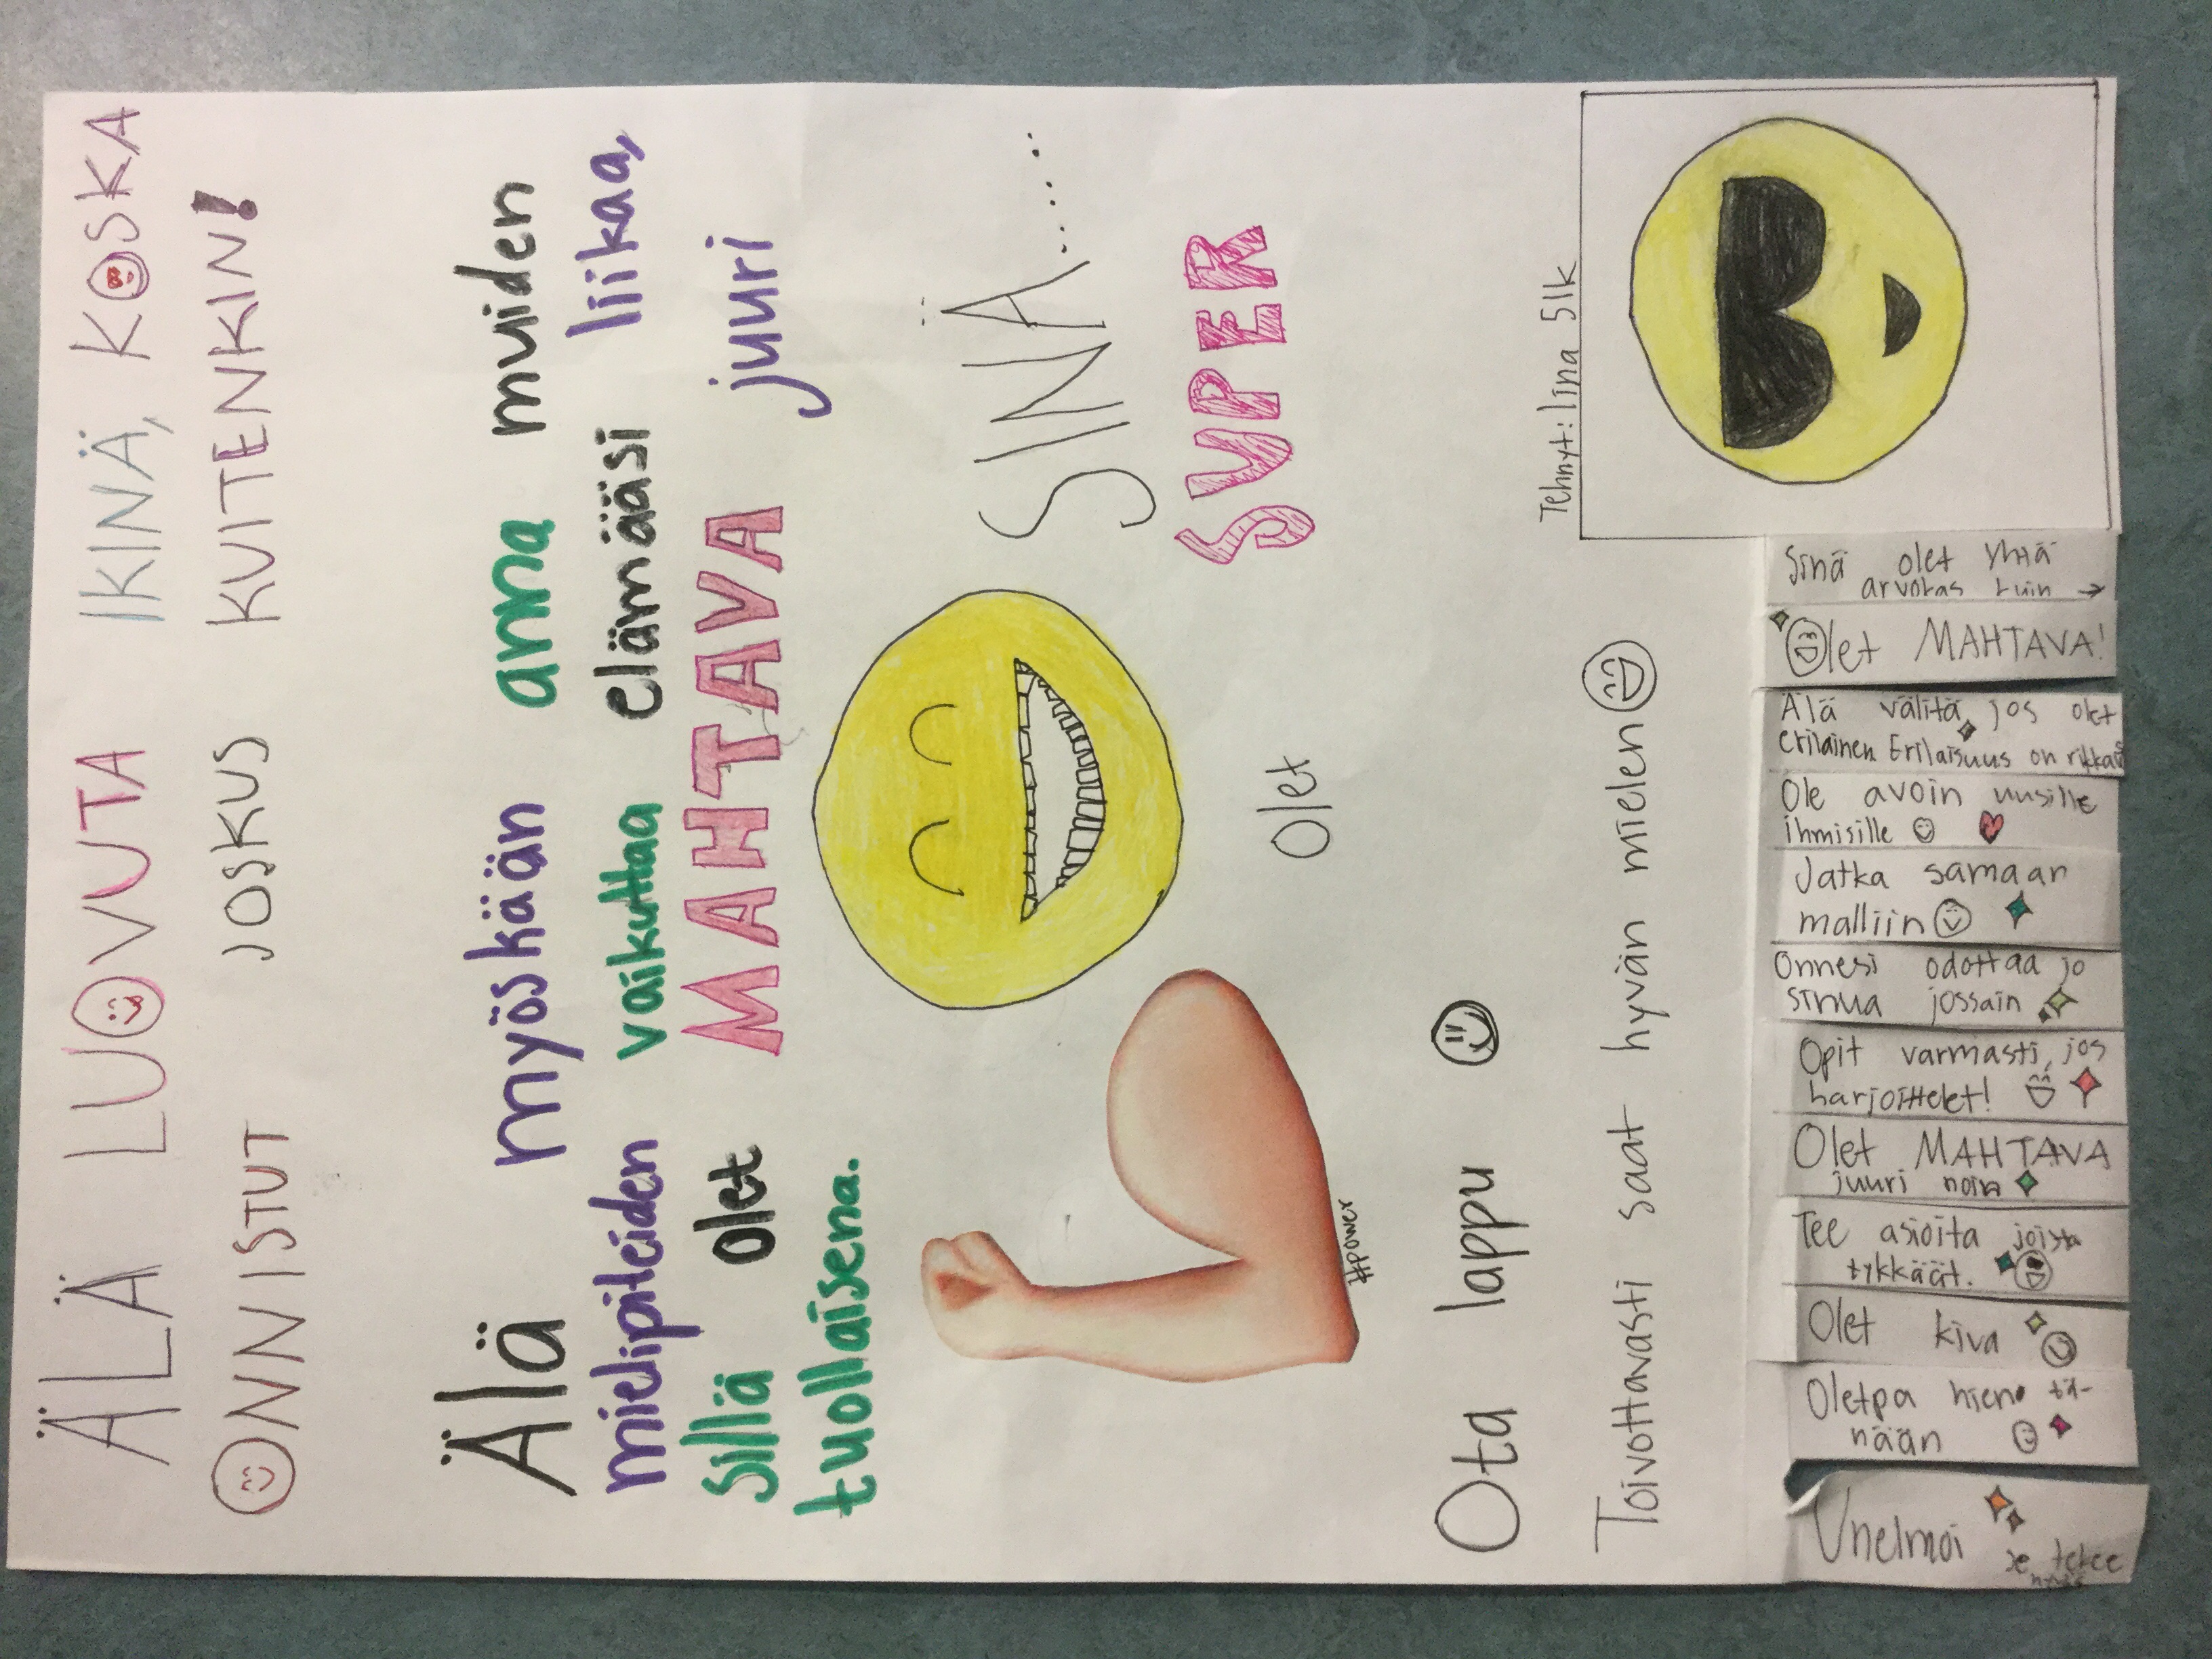 ÄLÄ LUOVUTA IKINÄ, KOSKA
ONNISTUT JOSKUS KUITENKIN!
Älä myöskään anna muiden
mielipiteiden vaikuttaa elämääsi liikaa,
sillä olet MAHTAVA juuri
tuollaisena.
SINÄ......
Olet SUPER
#power
Ota lappu
Toivottavasti saat hyvän mielen
Tehnyt: Iina 5lk
Unelmoi
se tekee
Oletpa hieno tä-
nään
Olet kiva
Tee asioita joista
tykkäät.
Olet MAHTAVA
juuri noin
Opit varmasti, jos
harjoittelet!
Onnesi odottaa jo
sinua jossain
Jatka samaan
malliin
Ole avoin uusille
ihmisille
Älä välitä jos olet
erilainen Erilaisuus on
Olet MAHTAVA!
Sinä olet yhtä
arvokas kuin →